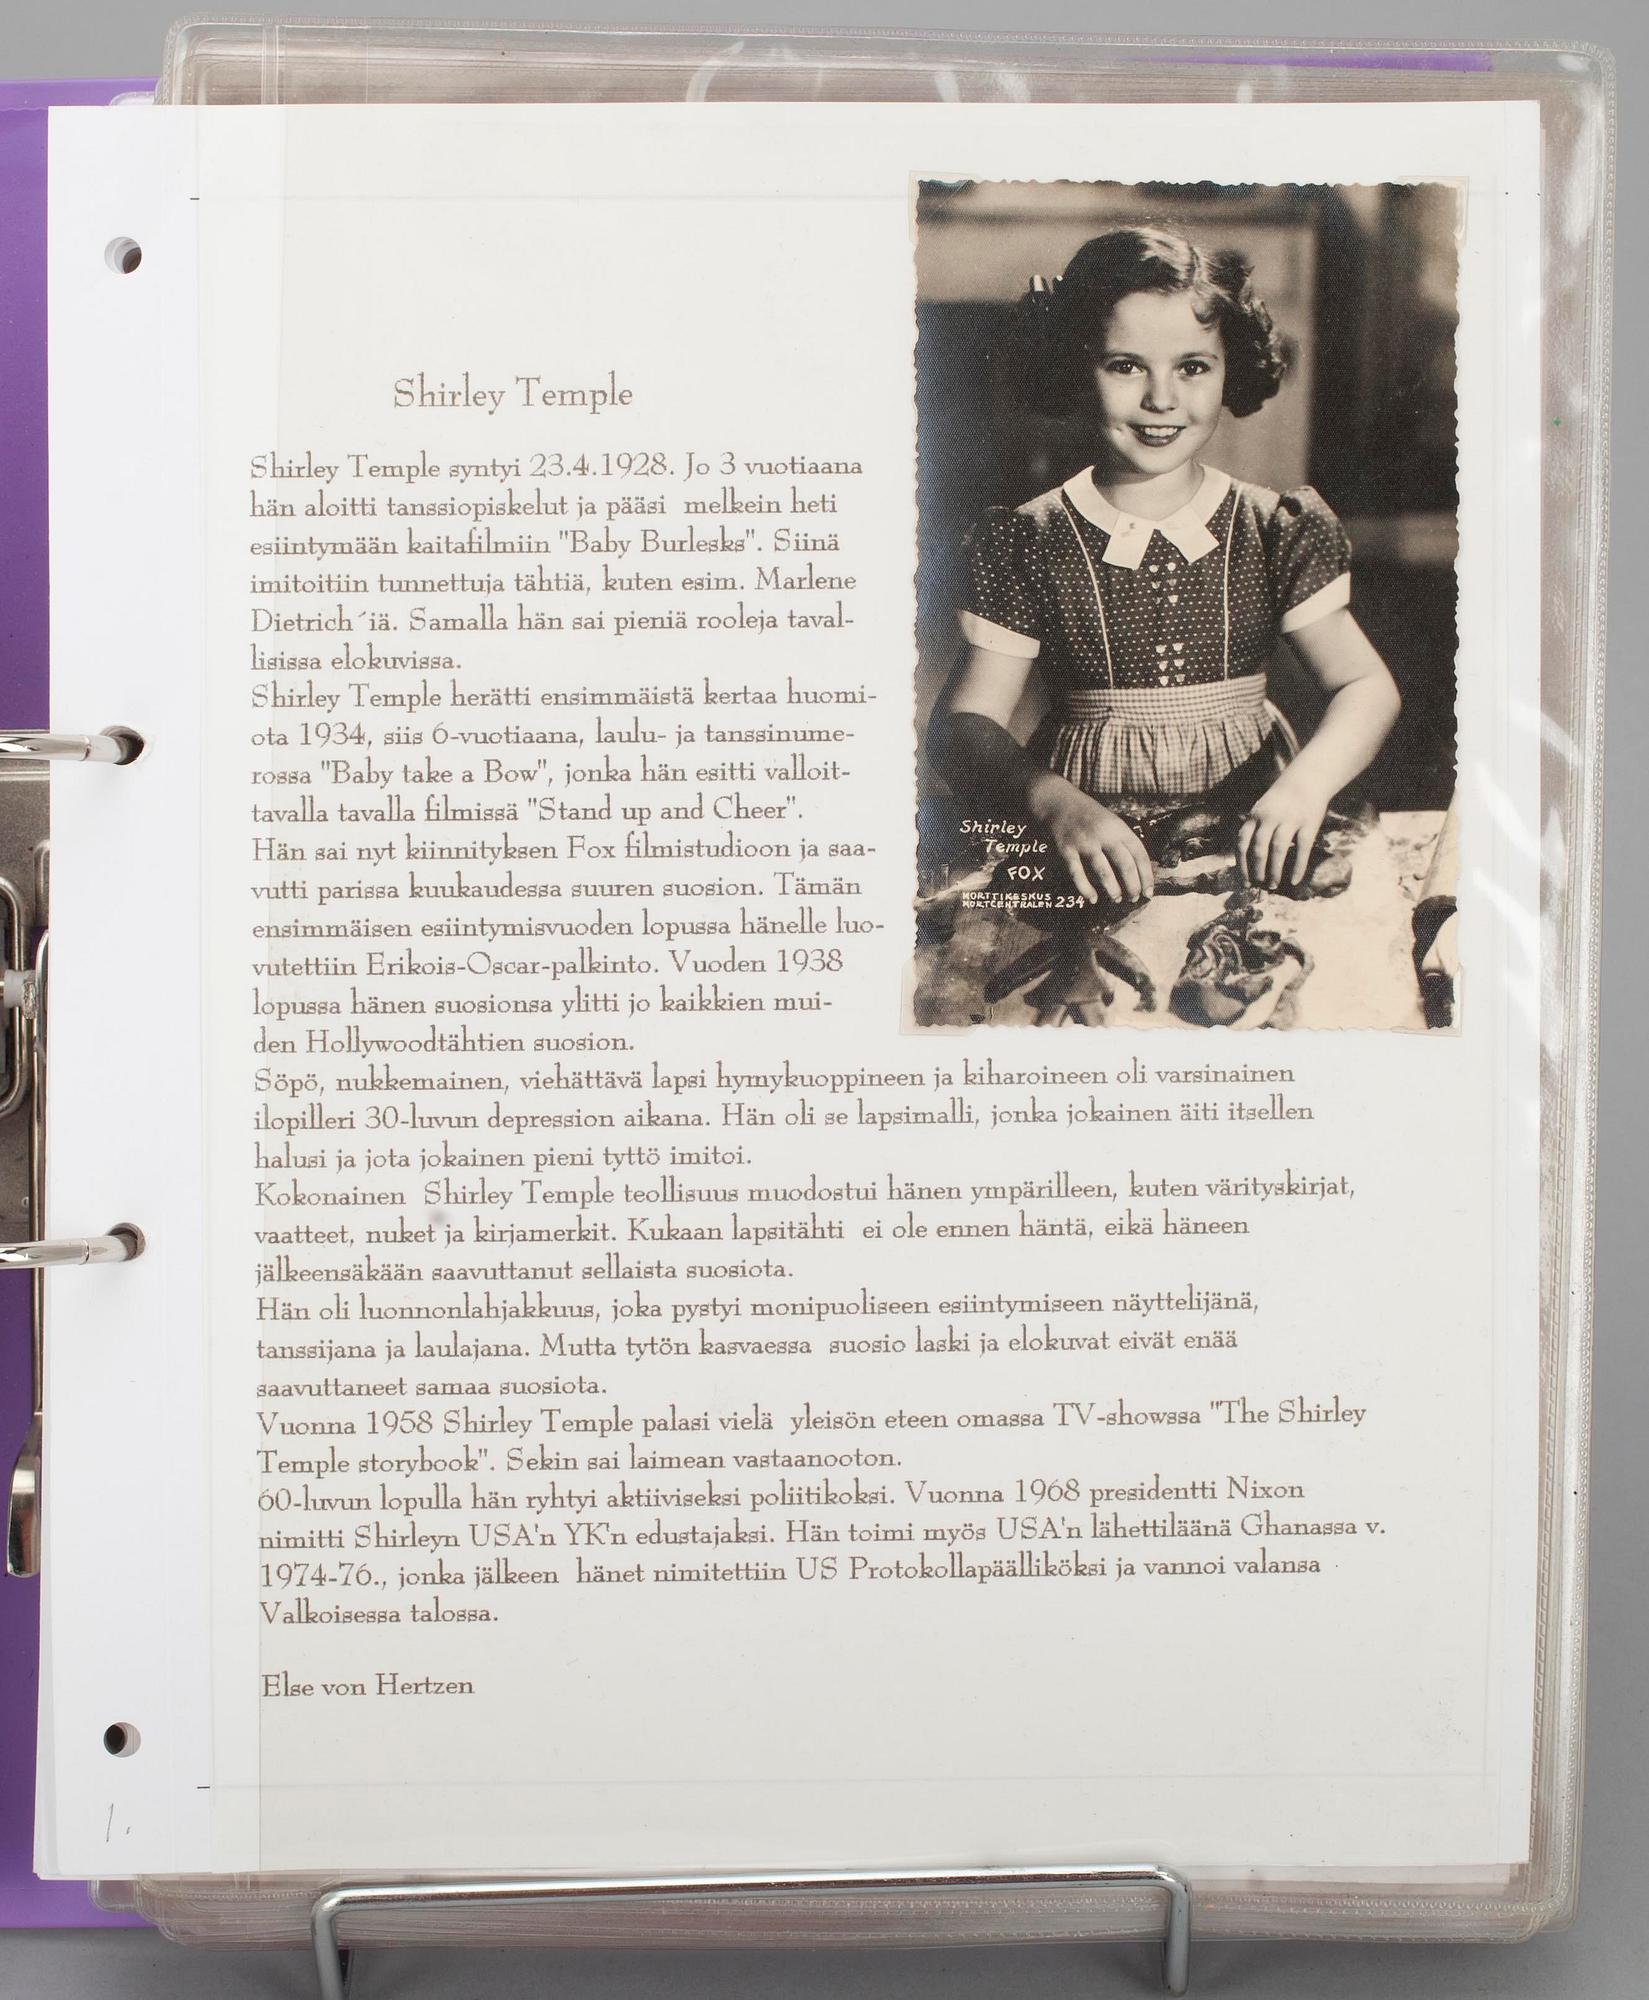 Shirley Temple
Shirley Temple syntyi 23.4.1928. Jo 3 vuotiaana
hän aloitti tanssiopiskelut ja pääsi melkein heti
esiintymään kaitafilmiin "Baby Burlesks". Siinä
imitoitiin tunnettuja tähtiä, kuten esim. Marlene
Dietrich´iä. Samalla hän sai pieniä rooleja taval-
lisissa elokuvissa.
Shirley Temple herätti ensimmäistä kertaa huomi-
ota 1934, siis 6-vuotiaana, laulu- ja tanssinume-
rossa "Baby take a Bow", jonka hän esitti valloit-
tavalla tavalla filmissä "Stand up and Cheer".
Hän sai nyt kiinnityksen Fox filmistudioon ja saa-
vutti parissa kuukaudessa suuren suosion. Tämän
ensimmäisen esiintymisvuoden lopussa hänelle luo-
vutettiin Erikois-Oscar-palkinto. Vuoden 1938
lopussa hänen suosionsa ylitti jo kaikkien mui-
den Hollywoodtähtien suosion.
Söpö, nukkemainen, viehättävä lapsi hymykuoppineen ja kiharoineen oli varsinainen
ilopilleri 30-luvun depression aikana. Hän oli se lapsimalli, jonka jokainen äiti itsellen
halusi ja jota jokainen pieni tyttö imitoi.
Kokonainen Shirley Temple teollisuus muodostui hänen ympärilleen, kuten värityskirjat,
vaatteet, nuket ja kirjamerkit. Kukaan lapsitähti ei ole ennen häntä, eikä häneen
jälkeensäkään saavuttanut sellaista suosiota.
Hän oli luonnonlahjakkuus, joka pystyi monipuoliseen esiintymiseen näyttelijänä,
tanssijana ja laulajana. Mutta tytön kasvaessa suosio laski ja elokuvat eivät enää
saavuttaneet samaa suosiota.
Vuonna 1958 Shirley Temple palasi vielä yleisön eteen omassa TV-showssa "The Shirley
Temple storybook". Sekin sai laimean vastaanooton.
60-luvun lopulla hän ryhtyi aktiiviseksi poliitikoksi. Vuonna 1968 presidentti Nixon
nimitti Shirleyn USA'n YK'n edustajaksi. Hän toimi myös USA'n lähettiläänä Ghanassa v.
1974-76., jonka jälkeen hänet nimitettiin US Protokollapäälliköksi ja vannoi valansa
Valkoisessa talossa.
Else von Hertzen
1.
Shirley
Temple
FOX
KORTTIKESKUS
KORTCENTRALEN 234